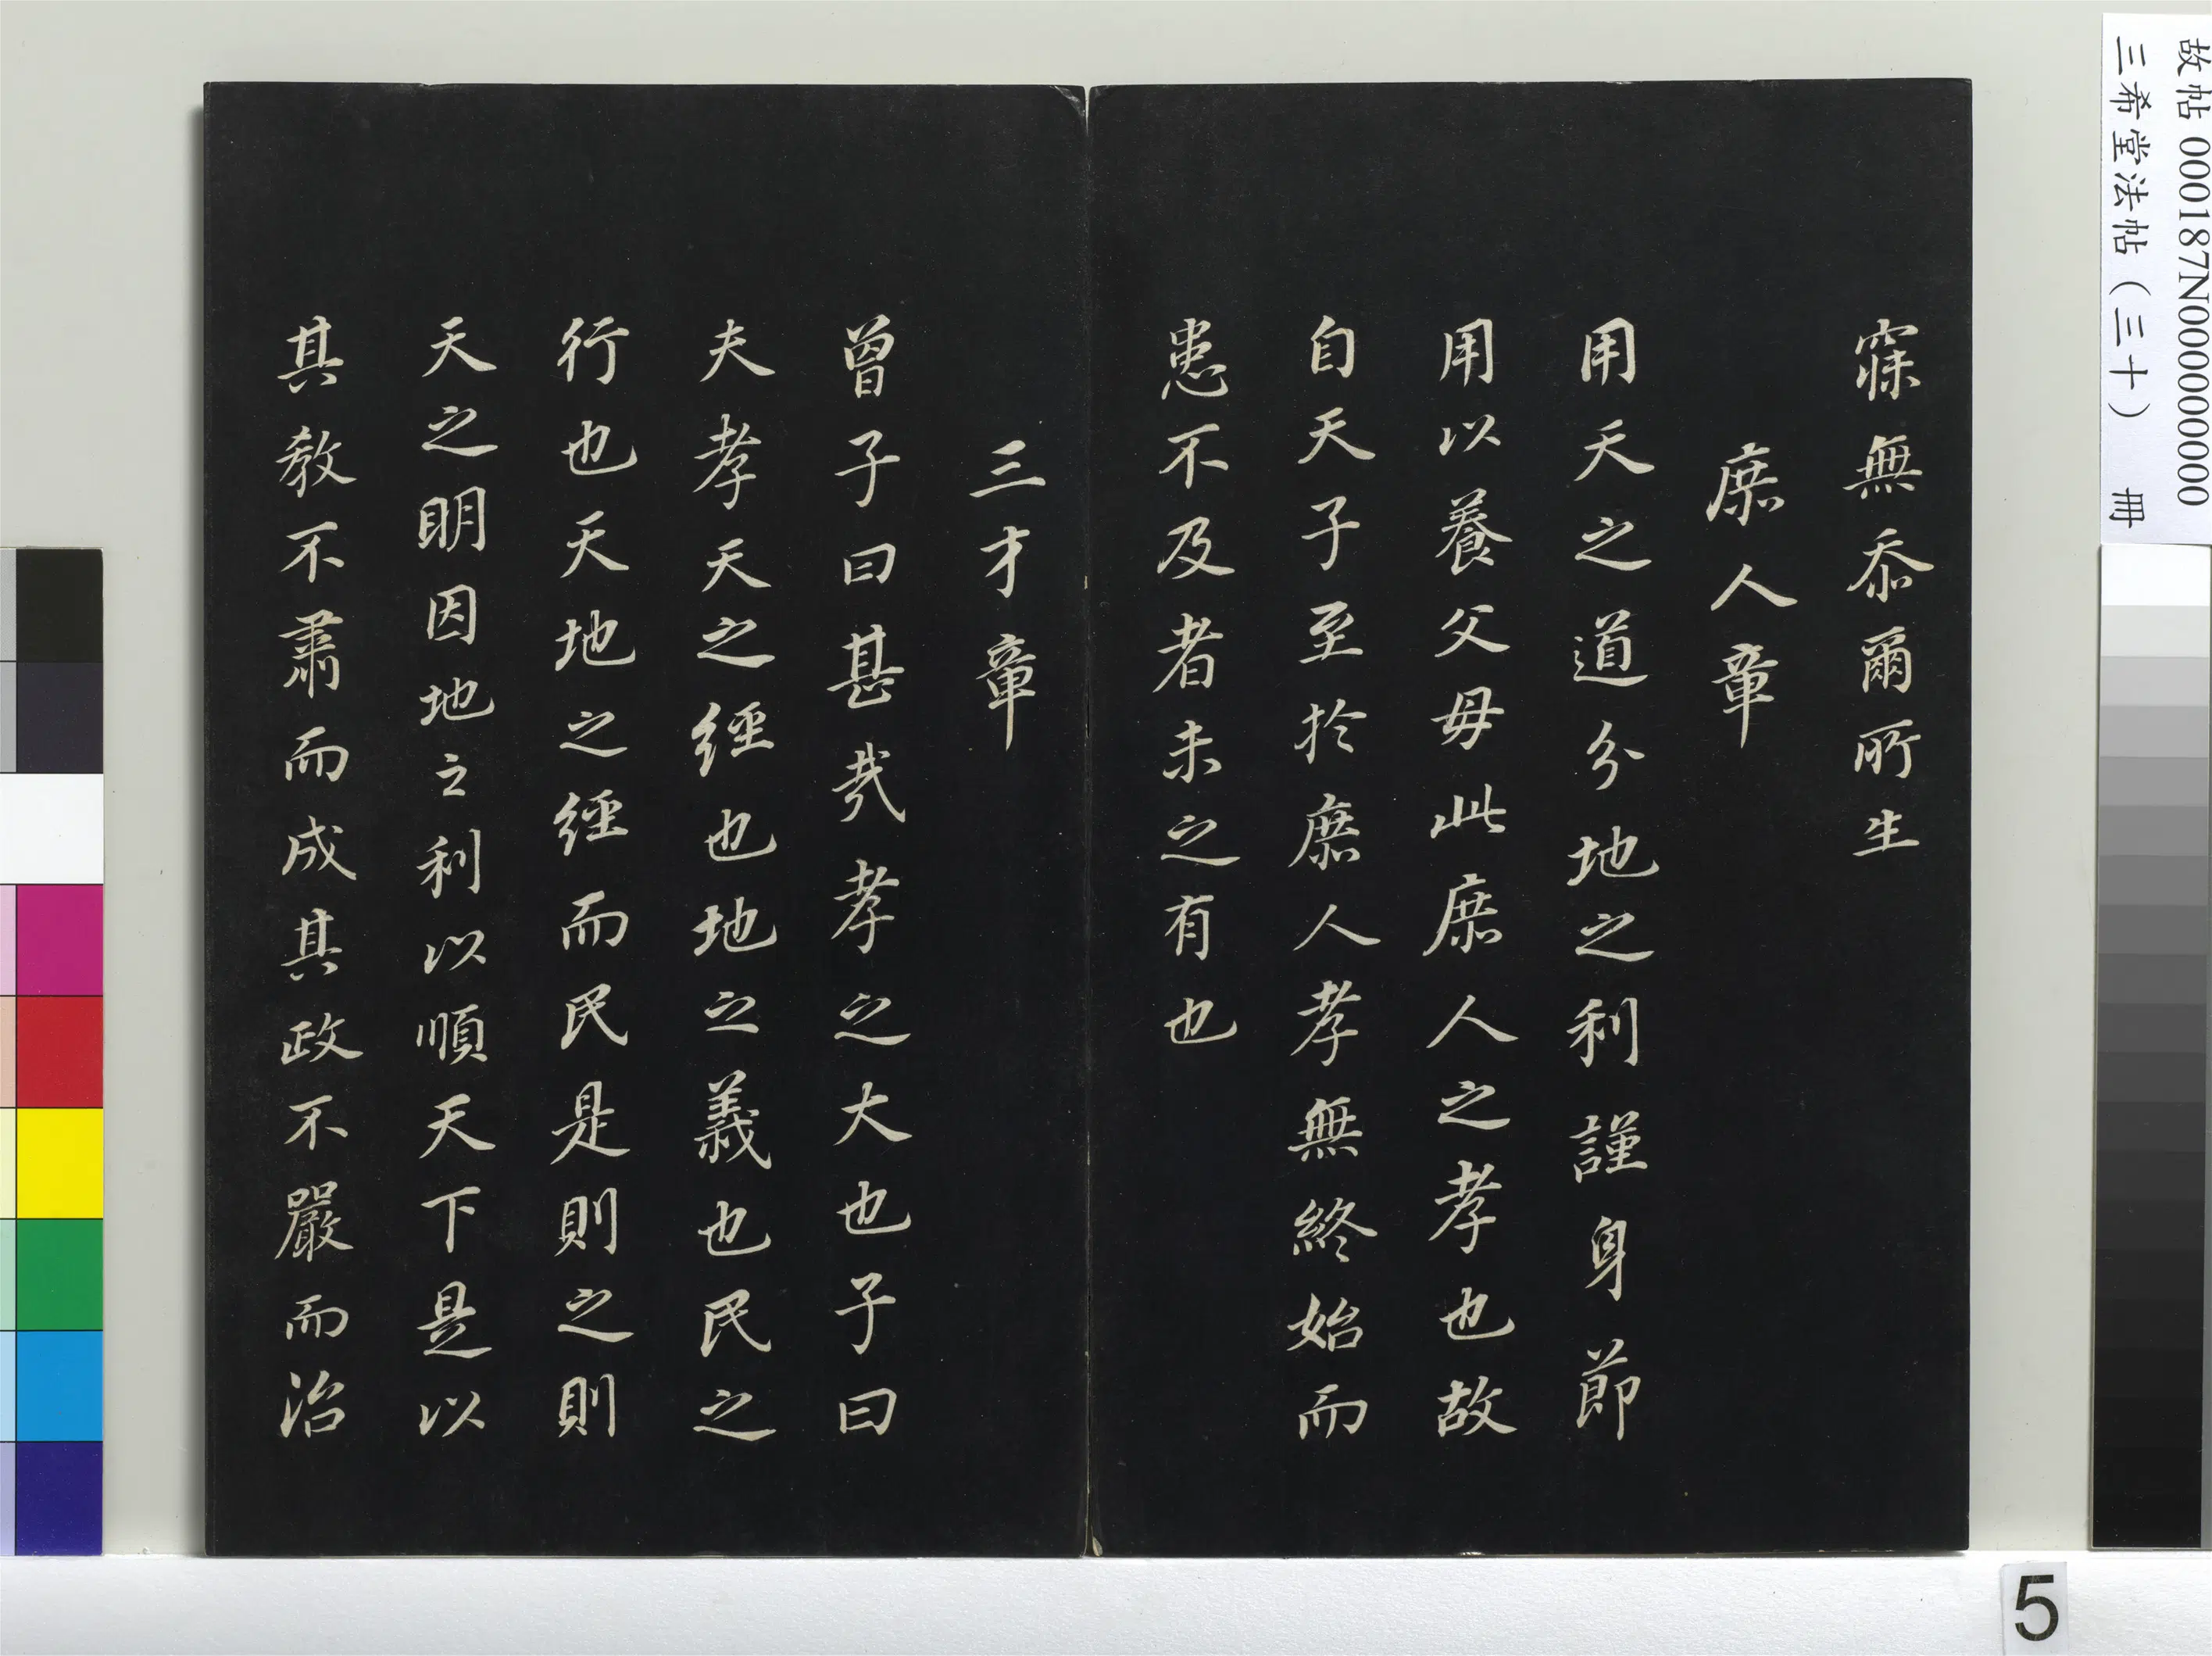 故帖 000187N000000000
三希堂法帖（三十） 冊
寐無忝爾所生
庶人章
用天之道分地之利謹身節
用以養父母此庶人之孝也故
自天子至於庶人孝無終始而
患不及者未之有也
三才章
曾子曰甚哉孝之大也子曰
夫孝天之經也地之義也民之
行也天地之經而民是則之則
天之明因地之利以順天下是以
其教不肅而成其政不嚴而治
5